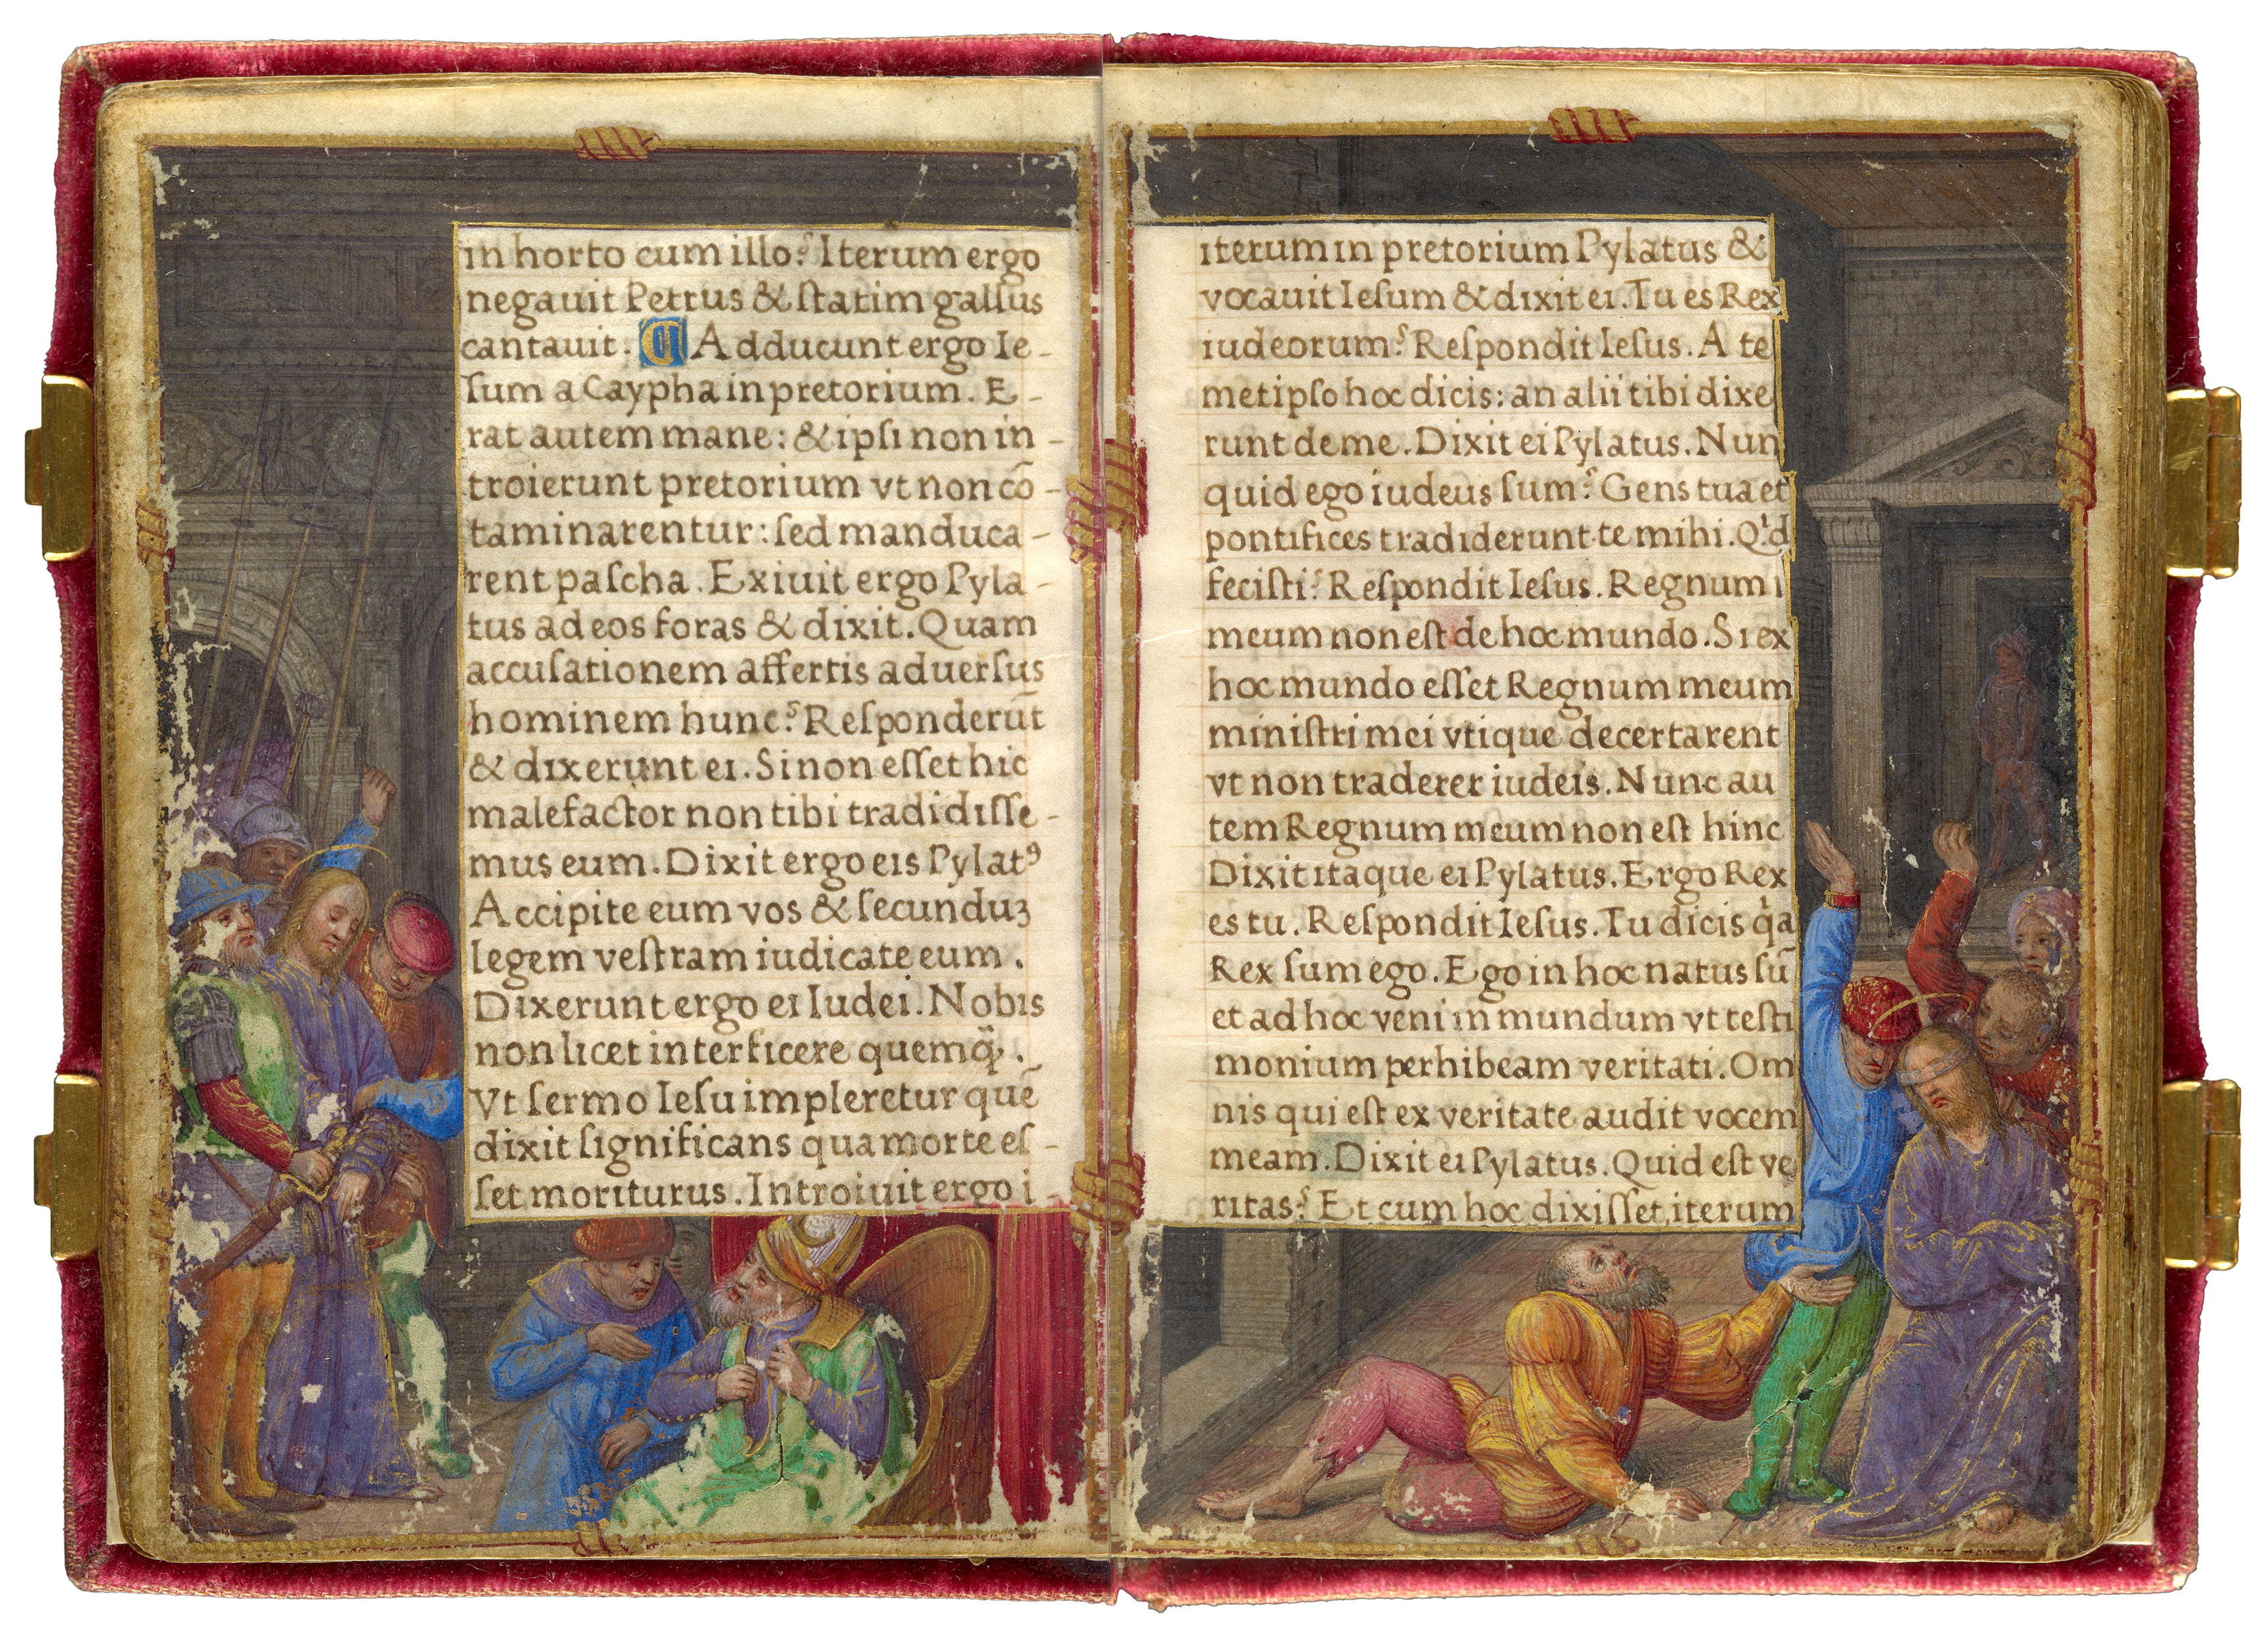 in horto cum illo? Iterum ergo
negauit Petrus & ſtatim gallus
cantauit. Adducunt ergo Ie-
ſum a Caypha in pretorium. E-
rat autem mane: & ipſi non in-
troierunt pretorium vt non cō-
taminarentur: ſed manduca-
rent paſcha. Exiuit ergo Pyla-
tus ad eos foras & dixit. Quam
accuſationem affertis aduerſus
hominem hunc? Reſponderūt
& dixerunt ei. Si non eſſet hic
malefactor non tibi tradidiſſe-
mus eum. Dixit ergo eis Pylatꝰ
Accipite eum vos & ſecunduꝫ
legem veſtram iudicate eum.
Dixerunt ergo ei Iudei. Nobis
non licet interficere quemꝗ̃.
Vt ſermo Ieſu impleretur quē
dixit ſignificans qua morte eſ-
ſet moriturus. Introiuit ergo i-
iterum in pretorium Pylatus &
vocauit Ieſum & dixit ei. Tu es Rex
iudeorum? Reſpondit Ieſus. A te
metipſo hoc dicis: an alii tibi dixe
runt de me. Dixit ei Pylatus. Nun
quid ego iudeus ſum? Gens tua et
pontifices tradiderunt te mihi. Qͥd
feciſti? Reſpondit Ieſus. Regnum
meum non eſt de hoc mundo. Si ex
hoc mundo eſſet Regnum meum
miniſtri mei vtique decertarent
vt non traderer iudeis. Nunc au
tem Regnum meum non eſt hinc
Dixit itaque ei Pylatus. Ergo Rex
es tu. Reſpondit Ieſus. Tu dicis qͥa
Rex ſum ego. Ego in hoc natus ſū
et ad hoc veni in mundum vt teſti
monium perhibeam veritati. Om
nis qui eſt ex veritate audit vocem
meam. Dixit ei Pylatus. Quid eſt ve
ritas? Et cum hoc dixiſſet, iterum